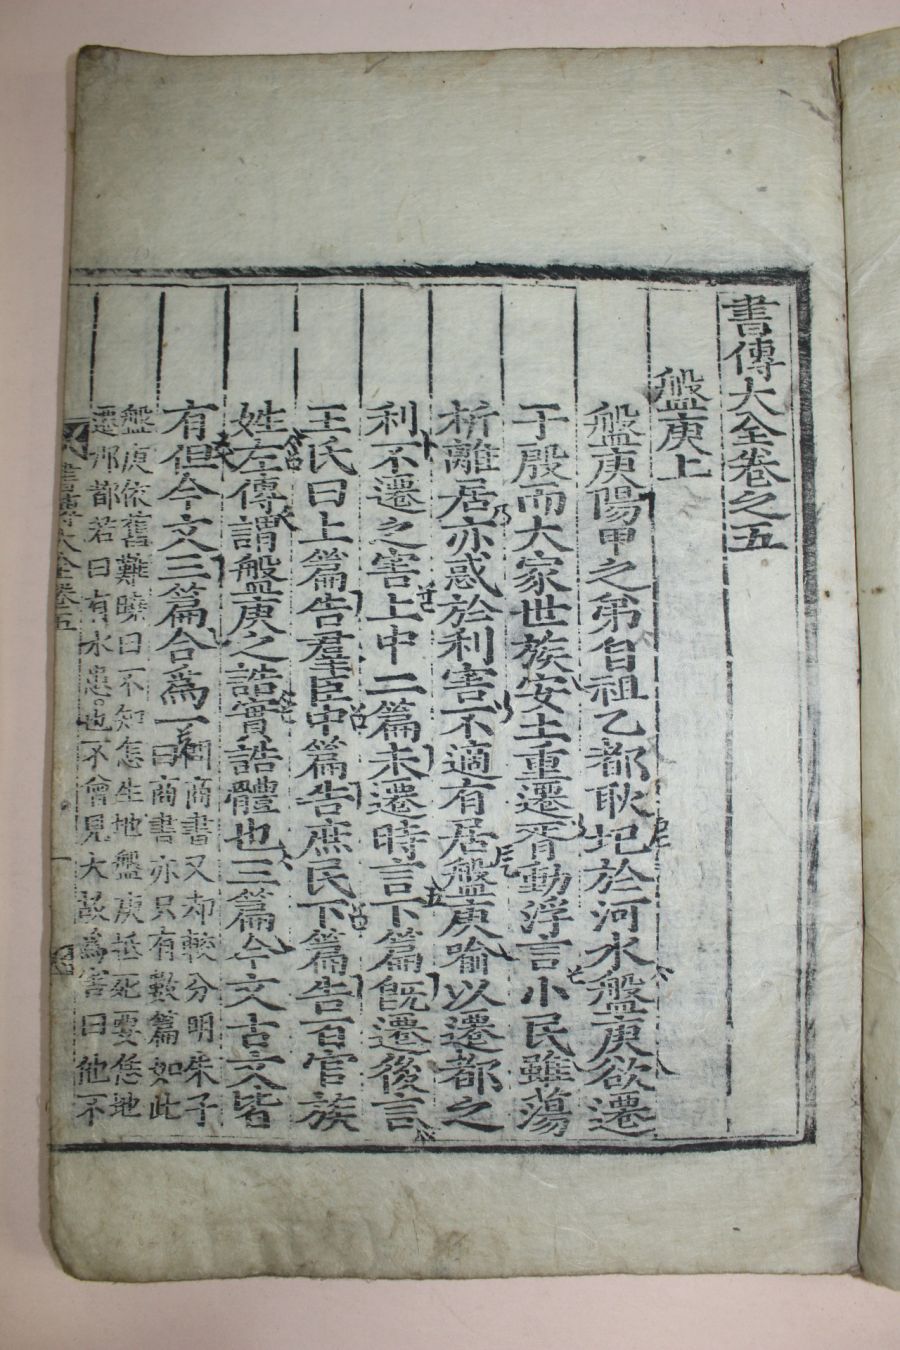 書傳大全卷之五
盤庚上
盤庚陽甲之弟自祖乙都耿圯於河水盤庚欲遷
于殷而大家世族安土重遷胥動浮言小民雖蕩
析離居亦惑於利害不適有居盤庚喻以遷都之
利不遷之害上中二篇未遷時言下篇旣遷後言
王氏曰上篇告羣臣中篇告庶民下篇告百官族
姓左傳謂盤庚之誥實誥體也三篇今文古文皆
有但今文三篇合爲一
問商書又却較分明朱子
曰商書亦只有數篇如此
盤庚依舊難曉曰不知怎生地盤庚抵死要恁地
遷那都若曰有水患也不曾見大故爲害曰他不
書傳大全卷五
一